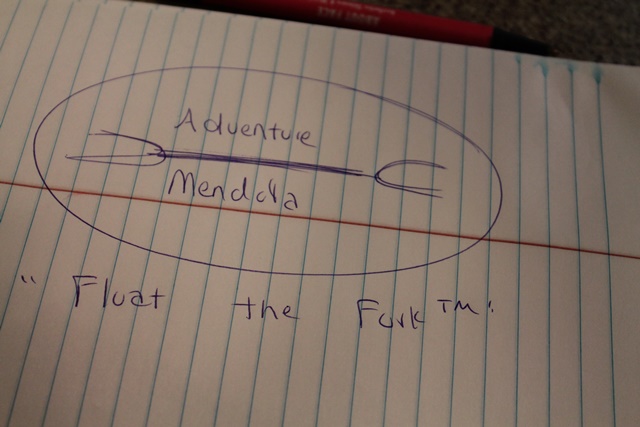 Adventure
Mendota
"Float the Fork™"